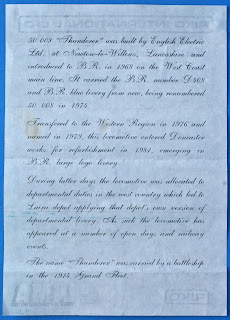 50 008 "Thunderer" was built by English Electric
Ltd. at Newton-le-Willows, Lancashire and
introduced to B.R. in 1968 on the West Coast
main line. It carried the B.R. number D408
and B.R. blue livery from new, being renumbered
50 008 in 1974.
Transfered to the Western Region in 1976 and
named in 1979, this locomotive entered Doncaster
works for refurbishment in 1981, emerging in
B.R. large logo livery.
During latter days the locomotive was allocated to
departmental duties in the west country which led to
Laira depot applying that depot's own version of
departmental livery. As such the locomotive has
appeared at a number of open days and railway
events.
The name "Thunderer" was carried by a battleship
in the 1914 Grand Fleet.